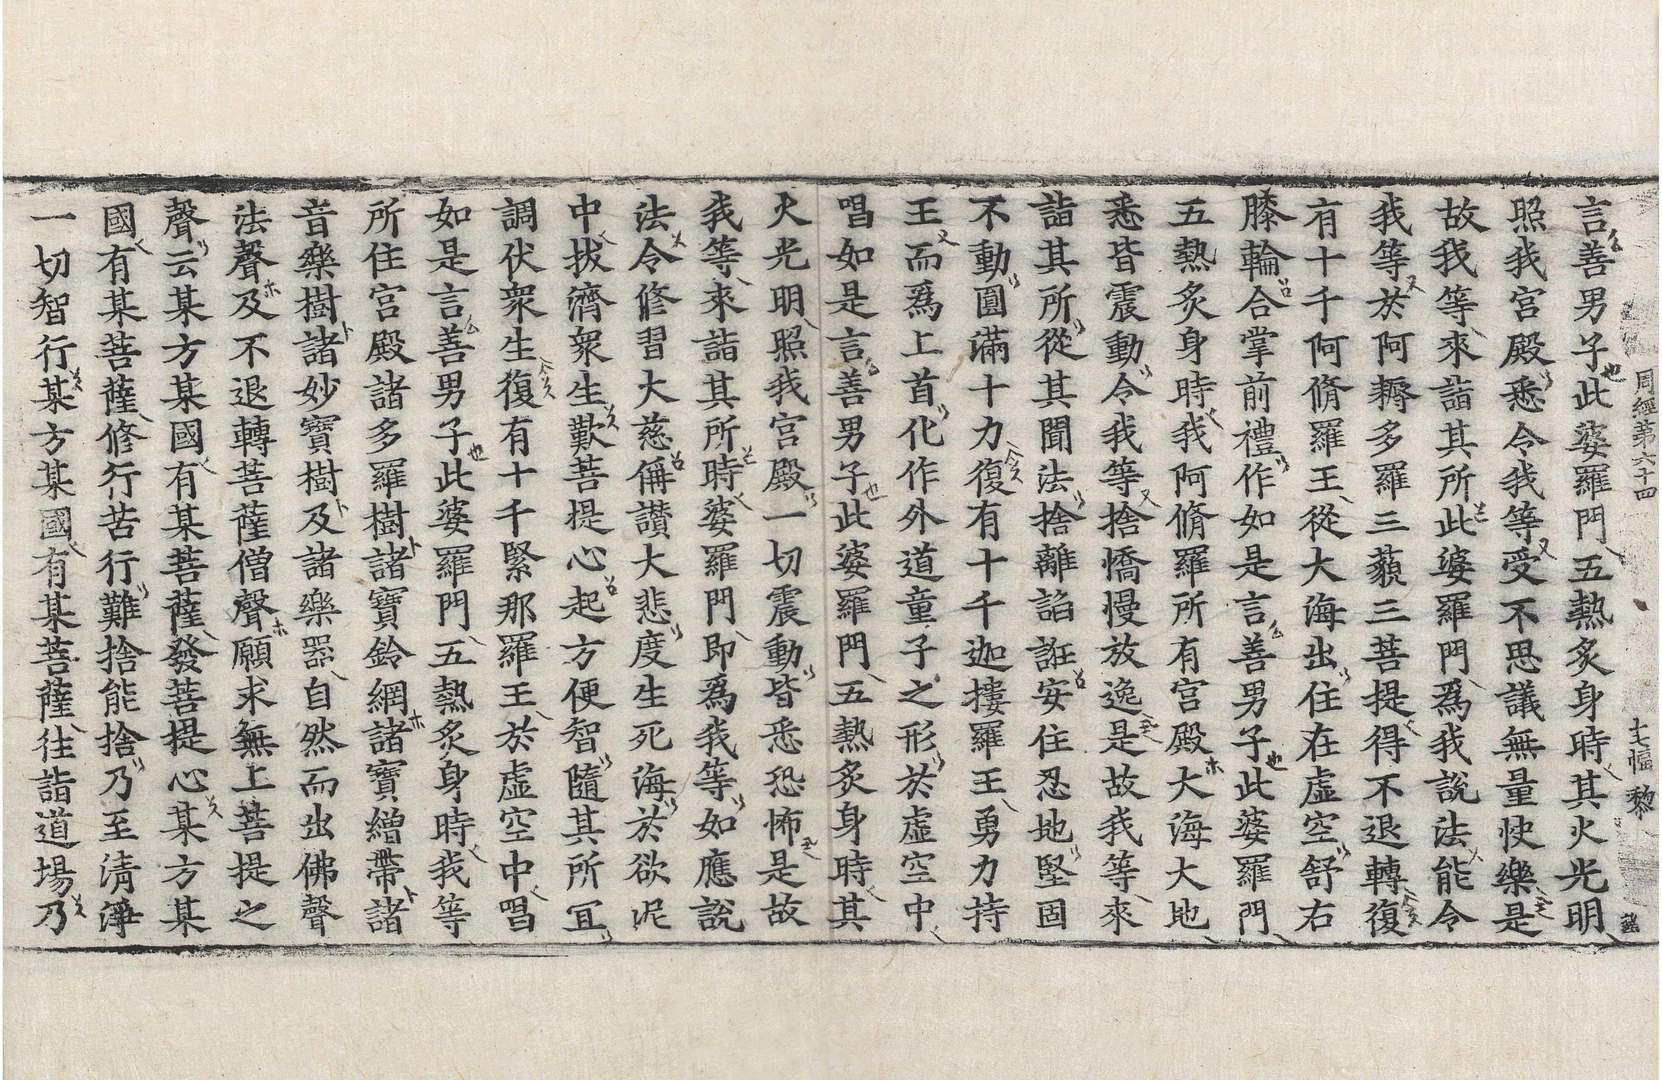 周經第六十四 七幅 黎
言善男子此婆羅門五熱炙身時其火光明
照我宮殿悉令我等受不思議無量快樂是
故我等來詣其所此婆羅門爲我說法能令
我等於阿耨多羅三藐三菩提得不退轉復
有十千阿脩羅王從大海出住在虛空舒右
膝輪合掌前禮作如是言善男子此婆羅門
五熱炙身時我阿脩羅所有宮殿大海大地
悉皆震動令我等捨憍慢放逸是故我等來
詣其所從其聞法捨離諂誑安住忍地堅固
不動圓滿十力復有十千迦摟羅王勇力持
王而爲上首化作外道童子之形於虛空中
唱如是言善男子此婆羅門五熱炙身時其
火光明照我宮殿一切震動皆悉恐怖是故
我等來詣其所時婆羅門即爲我等如應說
法令修習大慈偁讃大悲度生死海於欲泥
中拔濟衆生歎菩提心起方便智隨其所冝
調伏衆生復有十千緊那羅王於虛空中唱
如是言善男子此婆羅門五熱炙身時我等
所住宮殿諸多羅樹諸寶鈴網諸寶繒帶諸
音樂樹諸妙寶樹及諸樂器自然而出佛聲
法聲及不退轉菩薩僧聲願求無上菩提之
聲云某方某國有某菩薩發菩提心某方某
國有某菩薩修行苦行難捨能捨乃至清淨
一切智行某方某國有某菩薩往詣道場乃